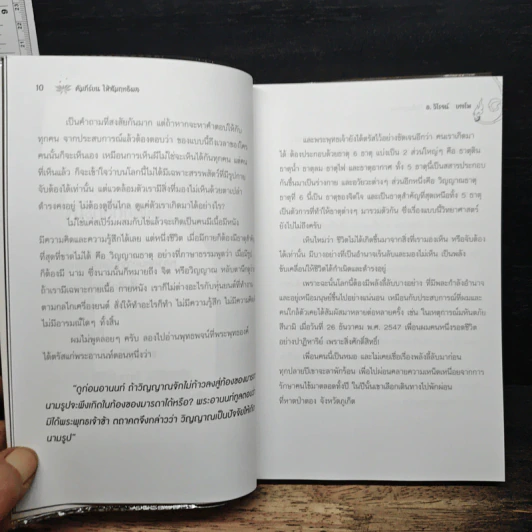 10
คัมภีร์
เป็นคำถามที่สงสัยกันมาก แต่ถ้าหากจะหาคำตอบให้กับ
ทุกคน จากประสบการณ์แล้วต้องตอบว่า ของแบบนี้ถึงเวลาของใคร
คนนั้นก็จะเห็นเอง เหมือนการเห็นผีไม่ใช่จะเห็นได้กันทุกคน แต่คน
ที่เห็นแล้ว ก็จะเข้าใจว่าบนโลกนี้ไม่ได้มีเฉพาะสรรพสัตว์ที่มีรูปกาย
จับต้องได้เท่านั้น แต่แวดล้อมตัวเรามีสิ่งที่มองไม่เห็นด้วยตาเปล่า
ดำรงคงอยู่ ไม่ต้องดูอื่นไกล ดูแค่ตัวเราเกิดมาได้อย่างไร?
ไม่ใช่แค่สเปิร์มผสมกับไข่แล้วจะเกิดเป็นคนมีเนื้อมีหนัง
มีความคิดและความรู้สึกได้เลย แต่หนึ่งชีวิต เมื่อมีกายก็ต้องมีธาตุ
ที่สุดที่ขาดไม่ได้ คือ วิญญาณธาตุ อย่างที่ภาษาธรรมพูดว่า เมื่อมีรูป
ก็ต้องมี นาม ซึ่งนามนั้นก็หมายถึง จิต หรือวิญญาณ หลับตานึก
ถ้าเรามีเฉพาะกายเนื้อ กายหนัง เราก็ไม่ต่างอะไรกับหุ่นยนต์ที่ทำ
ตามกลไกเครื่องยนต์ สั่งให้ทำอะไรก็ทำ ไม่มีความรู้สึก ไม่มีความคิด
ไม่มีอารมณ์ใดๆ ทั้งสิ้น
ผมไม่พูดลอยๆ ครับ ลองไปอ่านพุทธพจน์ที่พระพุทธองค์
ได้ตรัสแก่พระอานนท์ตอนหนึ่งว่า
"ดูก่อนอานนท์ ถ้าวิญญาณจักไม่ก้าวลงสู่ท้องของมารดา
นามรูปจะพึงเกิดในท้องของมารดาได้หรือ? พระอานนท์ทูลตอบว่า
มิได้พระพุทธเจ้าข้า ตถาคตจึงกล่าวว่า วิญญาณเป็นปัจจัยให้เกิด
นามรูป"
อ. วิโรจน์
และพระพุทธเจ้ายังได้ตรัสไว้อย่างชัดเจนอีกว่า คนเราเกิดมา
ได้ ต้องประกอบด้วยธาตุ 6 ธาตุ แบ่งเป็น 2 ส่วนใหญ่ๆ คือ ธาตุดิน
ธาตุน้ำ ธาตุลม ธาตุไฟ และธาตุอากาศ ทั้ง 5 ธาตุนี้เป็นสสารประกอบ
กันขึ้นมาเป็นร่างกาย และอวัยวะต่างๆ ส่วนอีกหนึ่งคือ วิญญาณธาตุ
ธาตุที่ 6 นี้เป็น ธาตุของจิตใจ และเป็นธาตุสำคัญที่สุดเหนือทั้ง 5 ธาตุ
เป็นตัวการที่ทำให้ธาตุต่างๆ มารวมตัวกัน ซึ่งเรื่องแบบนี้วิทยาศาสตร์
ยังไปไม่ถึงครับ
เห็นไหมว่า ชีวิตไม่ได้เกิดขึ้นมาจากสิ่งที่เรามองเห็น หรือจับต้อง
ได้เท่านั้น มีบางอย่างที่เป็นอำนาจเร้นลับและมองไม่เห็น เป็นพลัง
ขับเคลื่อนให้ชีวิตได้กำเนิดและดำรงอยู่
เพราะฉะนั้นโลกนี้ต้องมีพลังลี้ลับบางอย่าง ที่มีพละกำลังอำนาจ
และอยู่เหนือมนุษย์ขึ้นไปอย่างแน่นอน เหมือนกับประสบการณ์ที่ผมและ
คนใกล้ตัวเคยได้สัมผัสมาหลายต่อหลายครั้ง เช่น ในเหตุการณ์มหันตภัย
สึนามิ เมื่อวันที่ 26 ธันวาคม พ.ศ. 2547 เพื่อนผมคนหนึ่งรอดชีวิต
อย่างปาฏิหาริย์ เพราะสิ่งศักดิ์สิทธิ์!
เพื่อนคนนี้เป็นหมอ และไม่เคยเชื่อเรื่องพลังลี้ลับมาก่อน
ทุกปลายปีเขาจะลาพักร้อน เพื่อไปผ่อนคลายความเหนื่อยเหนื่อยจากการ
รักษาคนไข้มาตลอดทั้งปี ในปีนั้นเขาเลือกเดินทางไปพักผ่อน
ที่หาดป่าตอง จังหวัดภูเก็ต